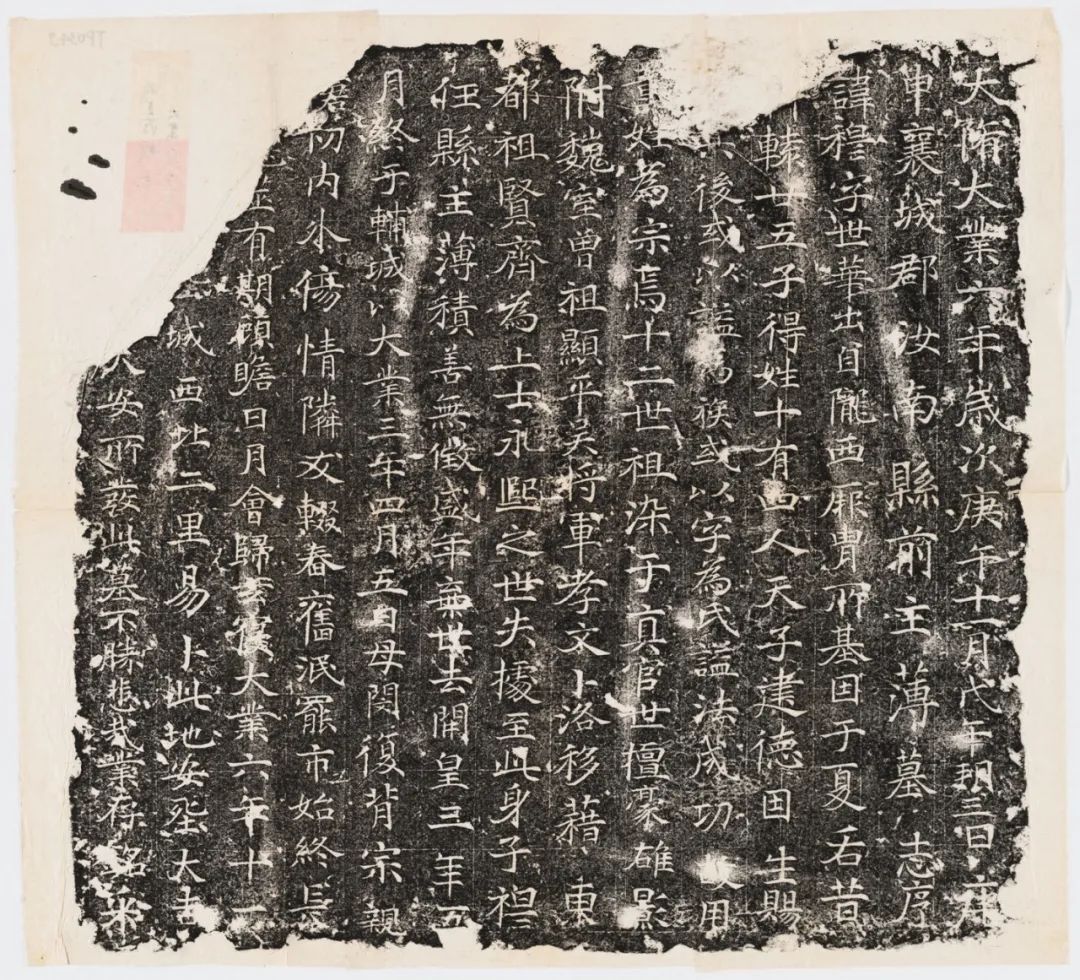 大隋大業六年歲次庚午十一月戊午朔三日庚
申襄城郡汝南縣前主薄墓志序
諱穆字世華出自隴西厥胄所基因于夏后昔
轅廿五子得姓十有四人天子建德因生賜
後或以謚為族或以字為氏謚法成功用
始為宗焉十二世祖染于真官世擅豪雄影
附魏室曾祖顯平吴将軍孝文卜洛移藉東
都祖賢齊為上士永熙之世失據至此身子
任縣主薄積善無徵盛年棄世去開皇三年五
月終于輔城以大業三年四月五日母閔復背宗親
内外傷情隣友輟春舊泯罷市始終長
有期顧瞻日月會歸大業六年十一
城西北二里易卜此地安厝大吉
大安所發此墓不勝悲哉業存